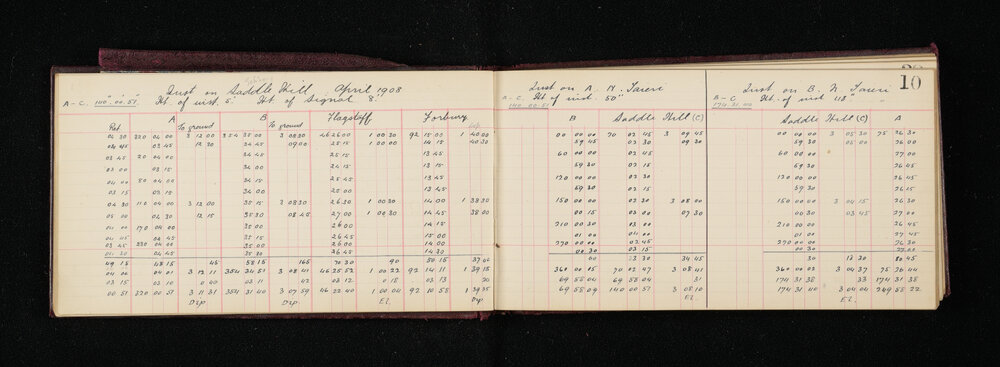 10
Inst on Saddle Hill April 1908
A-C. 140.00.51 Ht. of inst. 5" Ht of Signal 8"
Inst on A. N. Taieri
A-C. 140.00.51 Ht. of inst. 50"
Inst on B. N. Taieri
A-C 174.31.00 Ht. of inst 48"
A B Flagstaff Forbury
To ground To ground
B Saddle Hill (C)
Saddle Hill (C) A
04 30 320 04 00 3 12 00 354 35 00 3 08 30 46 26 00 1 00 30 92 15 00 1 40 00
04 45 03 45 12 30 34 45 09 00 25 15 1 00 00 14 15 40 30
03 45 20 04 00 34 45 25 15 13 45
03 00 03 45 34 15 24 15 13 15
04 00 50 04 00 34 45 25 45 13 45
03 15 03 15 34 00 25 00 13 45
04 30 110 04 00 3 12 00 35 15 3 08 30 26 30 1 00 30 14 00 1 38 30
05 00 04 30 12 15 35 30 08 45 27 00 1 00 30 14 45 38 00
04 00 170 04 00 35 00 26 00 14 15
04 45 04 45 35 15 26 45 15 00
03 45 230 04 00 35 00 26 00 14 00
49 15 48 15 45 58 15 165 70 30 90 50 15 37 00
04 00 04 01 3 12 11 354 34 51 3 08 41 46 25 52 1 00 22 92 14 11 1 39 15
03 15 03 10 0 40 03 11 42 03 12 0 18 03 13 20
00 51 320 00 51 3 11 31 354 31 40 3 07 59 46 22 40 1 00 04 92 10 58 1 39 35
Dep Dep El. Dep
00 00 00 00 70 02 45 3 09 45
59 45 02 30 09 30
60 00 00 02 45
59 30 02 15
120 00 00 02 30
59 30 02 15
150 00 00 02 30 3 08 00
00 15 03 00 07 30
210 00 00 03 30
01 00 04 00
270 00 00 03 45
00 30 03 15
00 33 30 34 45
360 00 15 70 02 47 3 08 41
69 55 09 69 55 04 31
69 55 09 140 00 51 3 08 10
El.
00 00 00 3 05 30 75 26 30
59 30 05 00 26 00
60 00 00 27 00
59 30 26 15
120 00 00 26 45
59 30 26 15
150 00 00 3 04 15 26 30
00 30 03 45 27 00
210 00 00 26 45
01 00 27 45
270 00 00 26 30
00 30 27 00
30 18 30 80 45
360 00 03 3 04 37 75 26 44
174 31 38 33 174 31 38
174 31 35 3 04 04 249 58 22
El.